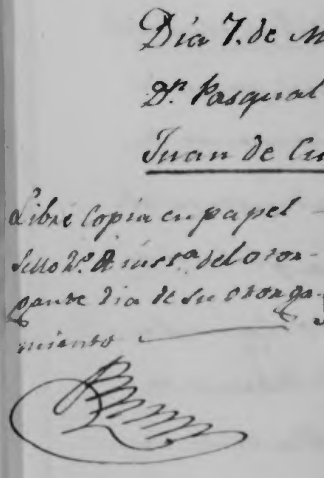 Dia 7. de M
Dn. Pasqual
Juan de Cu
Libré Copia en papel
sello 2º. A insta. del otor-
gante dia de su otorga-
miento